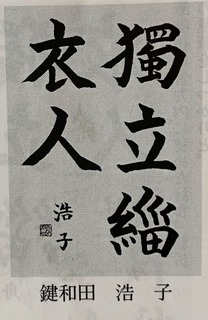 獨立緇
衣人
浩子
鍵和田 浩 子